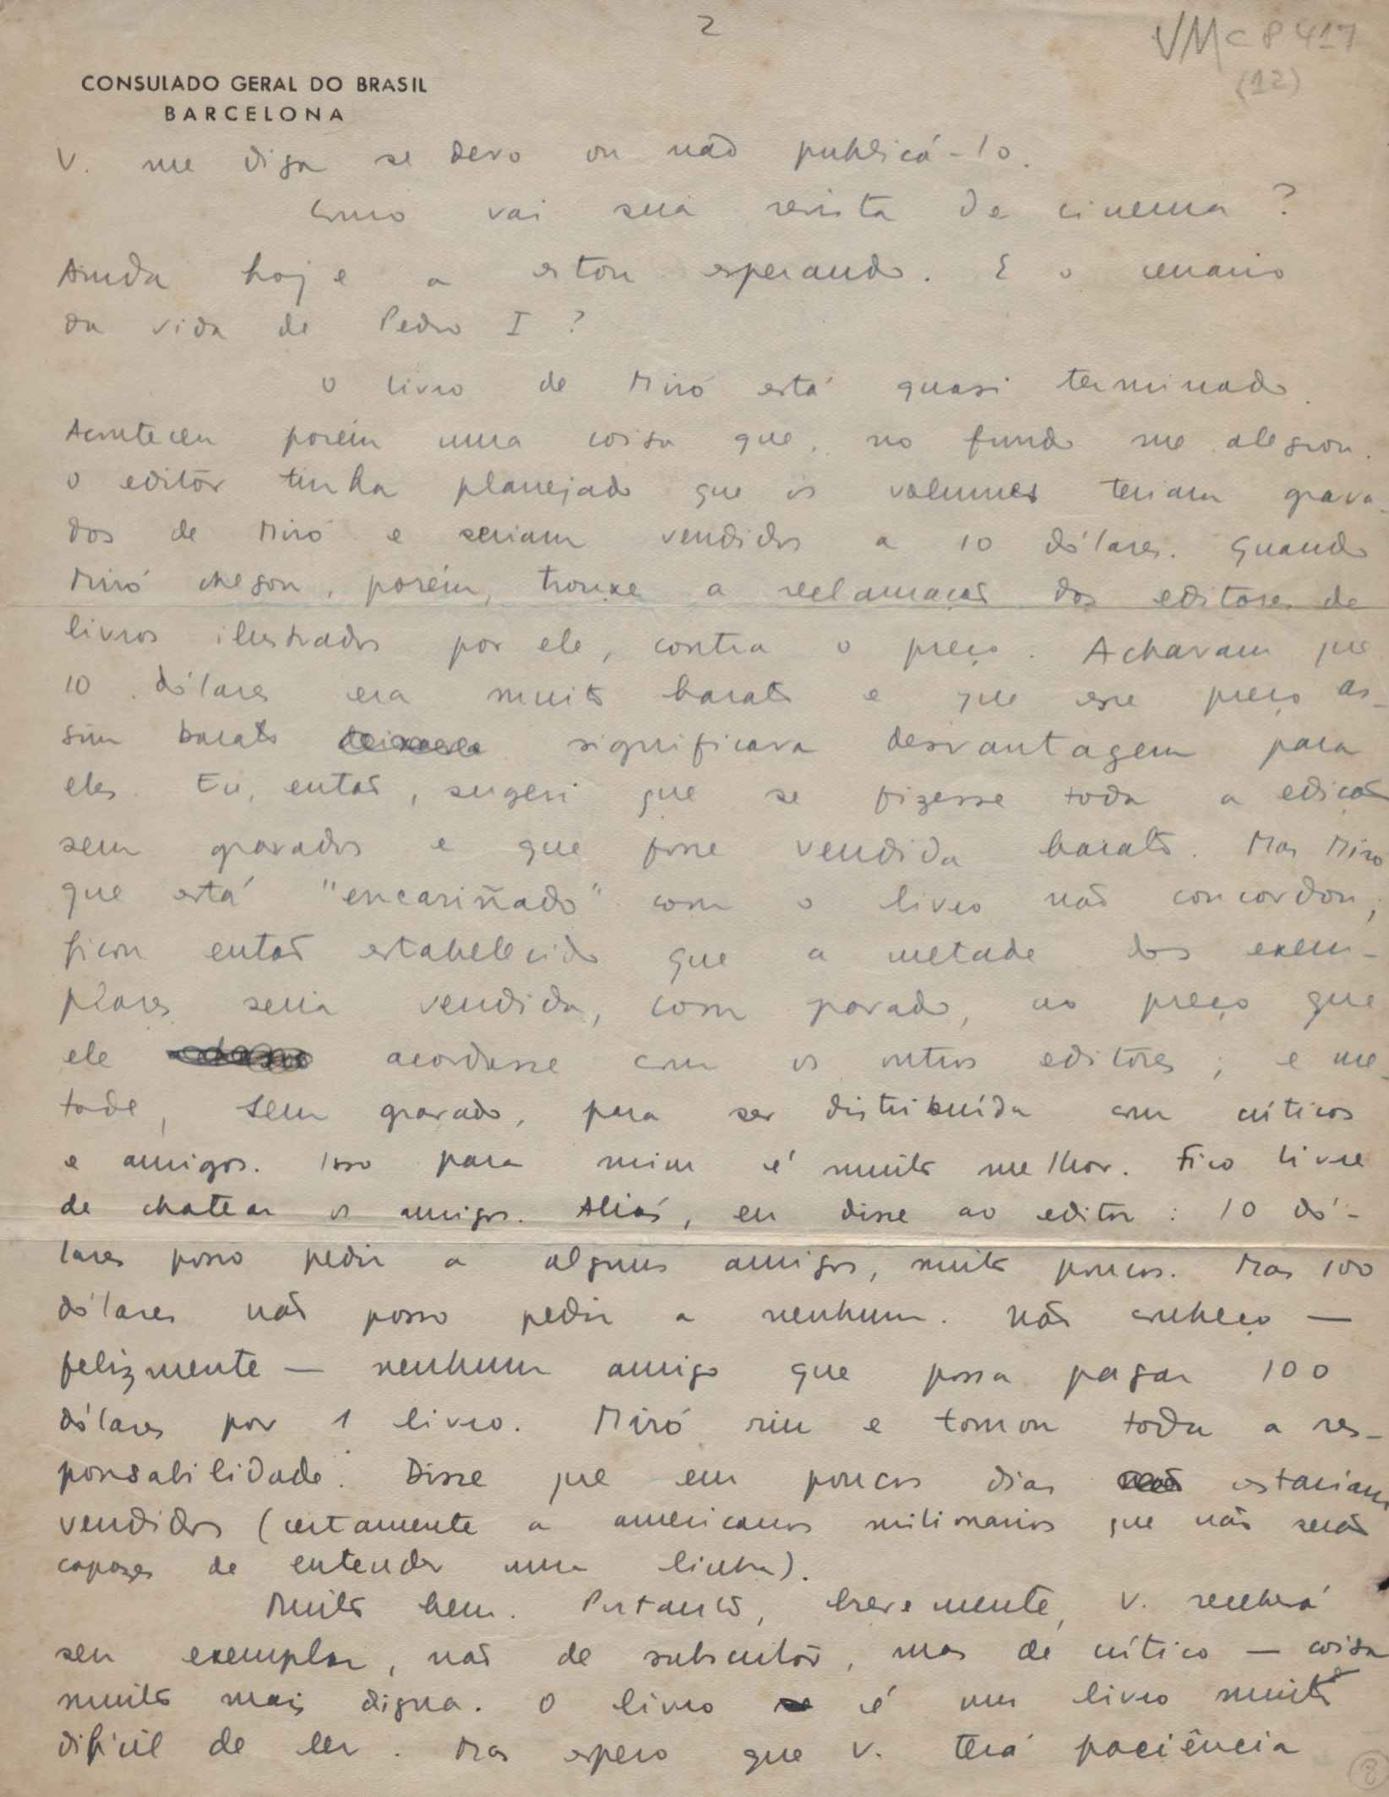 2
VMcP417
(12)
CONSULADO GERAL DO BRASIL
BARCELONA
V. me diga se devo ou não publicá-lo.
Como vai sua revista de cinema?
Ainda hoje a estou esperando. E o cenario
da vida de Pedro I?
O livro de Miró está quasi terminado.
Aconteceu porém uma coisa que, no fundo me alegrou.
O editôr tinha planejado que os volumes teriam grava-
dos de Miró e seriam vendidos a 10 dólares. Quando
Miró chegou, porém, trouxe a reclamação dos editores de
livros ilustrados por ele, contra o preço. Achavam que
10 dólares era muito barato e que esse preço as-
sim barato significava desvantagem para
eles. Eu, então, sugeri que se fizesse toda a edição
sem gravados e que fosse vendida barato. Mas Miró
que está "encariñado" com o livro não concordou;
ficou então estabelecido que a metade dos exem-
plares seria vendida, com gravado, ao preço que
ele acordasse com os outros editôres; e me-
tade, sem gravado, para ser distribuída com críticos
e amigos. Isso para mim é muito melhor. Fico livre
de chatear os amigos. Aliás, eu disse ao editor: 10 dó-
lares posso pedir a alguns amigos, muito poucos. Mas 100
dólares não posso pedir a nenhum. Não conheço —
felizmente — nenhum amigo que possa pagar 100
dólares por 1 livro. Miró riu e tomou toda a res-
ponsabilidade. Disse que em poucos dias estariam
vendidos (certamente a americanos milionarios que não serão
capazes de entender uma linha).
Muito bem. Portanto, brevemente, V. receberá
seu exemplar, não de subscritôr, mas de crítico — coisa
muito mais digna. O livro é um livro muito
difícil de ler. Mas espero que V. terá paciência
8